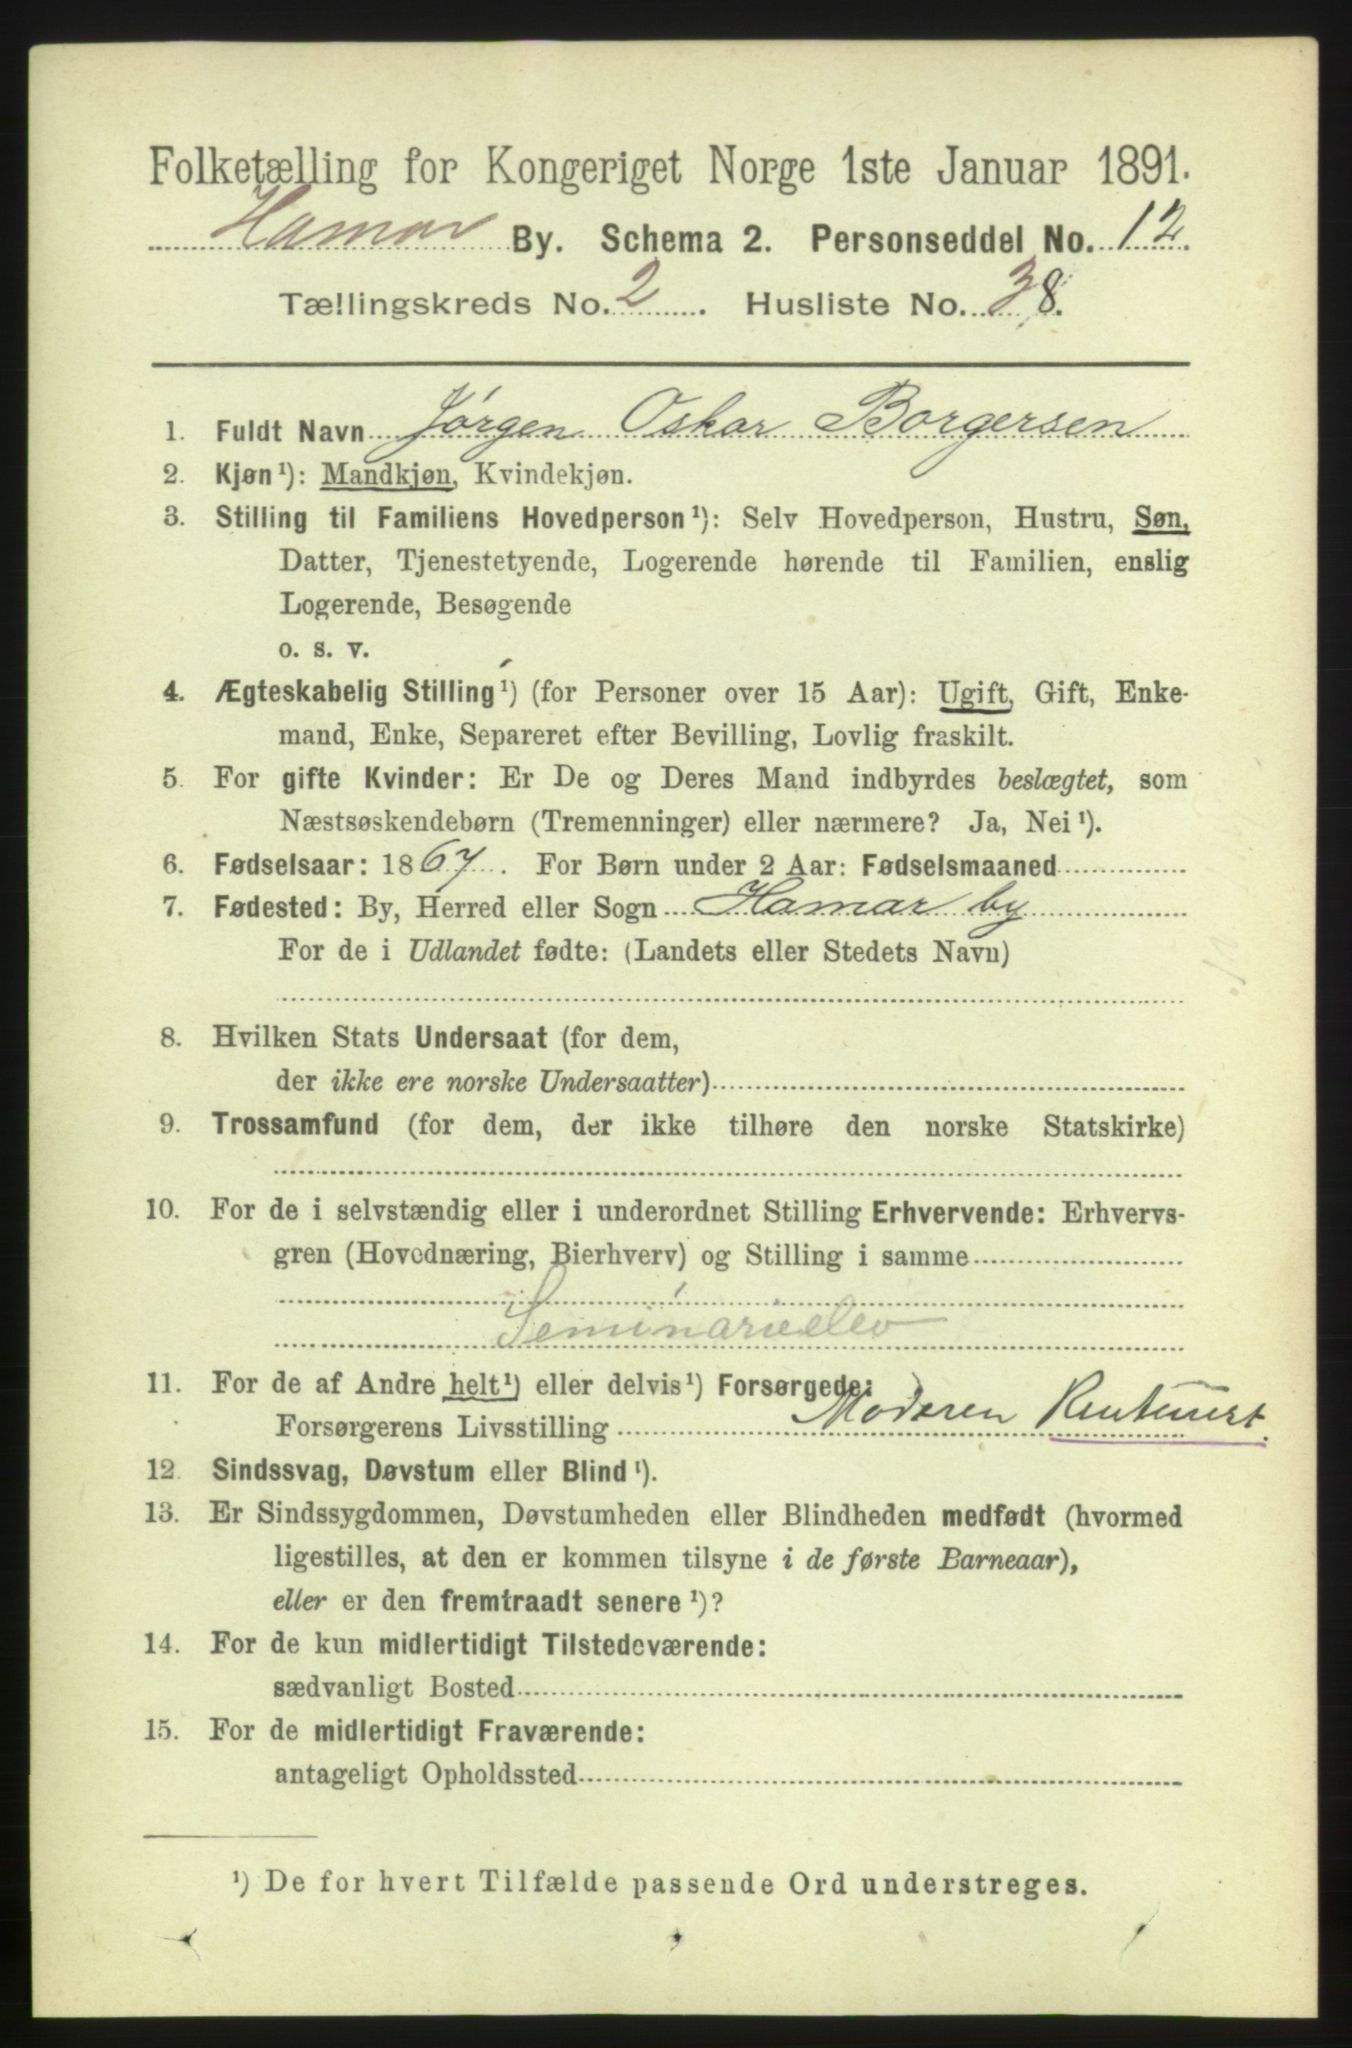 Folketælling for Kongeriget Norge 1ste Januar 1891.
Hamar By. Schema 2. Personseddel No. 12.
Tællingskreds No. 2. Husliste No. 38.
1. Fuldt Navn Jørgen Oskar Borgersen
2. Kjøn¹): Mandkjøn, Kvindekjøn.
3. Stilling til Familiens Hovedperson¹): Selv Hovedperson, Hustru, Søn,
Datter, Tjenestetyende, Logerende hørende til Familien, enslig
Logerende, Besøgende
o. s. v.
4. Ægteskabelig Stilling¹) (for Personer over 15 Aar): Ugift, Gift, Enke-
mand, Enke, Separeret efter Bevilling, Lovlig fraskilt.
5. For gifte Kvinder: Er De og Deres Mand indbyrdes beslægtet, som
Næstsøskendebørn (Tremenninger) eller nærmere? Ja, Nei¹).
6. Fødselsaar: 1867. For Børn under 2 Aar: Fødselsmaaned
7. Fødested: By, Herred eller Sogn Hamar by
For de i Udlandet fødte: (Landets eller Stedets Navn)
8. Hvilken Stats Undersaat (for dem,
der ikke ere norske Undersaatter)
9. Trossamfund (for dem, der ikke tilhøre den norske Statskirke)
10. For de i selvstændig eller i underordnet Stilling Erhvervende: Erhvervs-
gren (Hovednæring, Bierhverv) og Stilling i samme
Seminarieelev
11. For de af Andre helt¹) eller delvis¹) Forsørgede:
Forsørgerens Livsstilling Moderen Rentenist.
12. Sindssvag, Døvstum eller Blind¹).
13. Er Sindssygdommen, Døvstumheden eller Blindheden medfødt (hvormed
ligestilles, at den er kommen tilsyne i de første Barneaar),
eller er den fremtraadt senere¹)?
14. For de kun midlertidigt Tilstedeværende:
sædvanligt Bosted
15. For de midlertidigt Fraværende:
antageligt Opholdssted
¹) De for hvert Tilfælde passende Ord understreges.